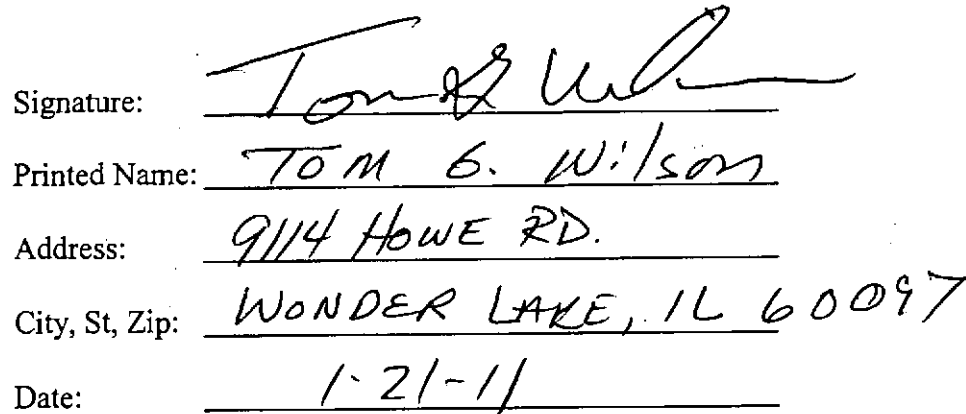 Signature: Tom G Wilson
Printed Name: TOM G. Wilson
Address: 9114 HOWE RD.
City, St, Zip: WONDER LAKE, IL 60097
Date: 1-21-11